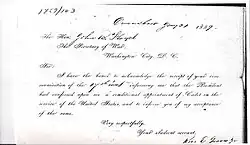 Jany 31, 1859.
To the Hon: John B. Floyd
The Secretary of War,
Washington City, D. C.
Sir:
I have the honor to acknowledge the receipt of your com
munication of the informing me that the President
has conferred upon me a conditional appointment of Cadet in the
service of the United States, and to inform you of my acceptance
of the same.
Very respectfully,
Your Obdient servant,